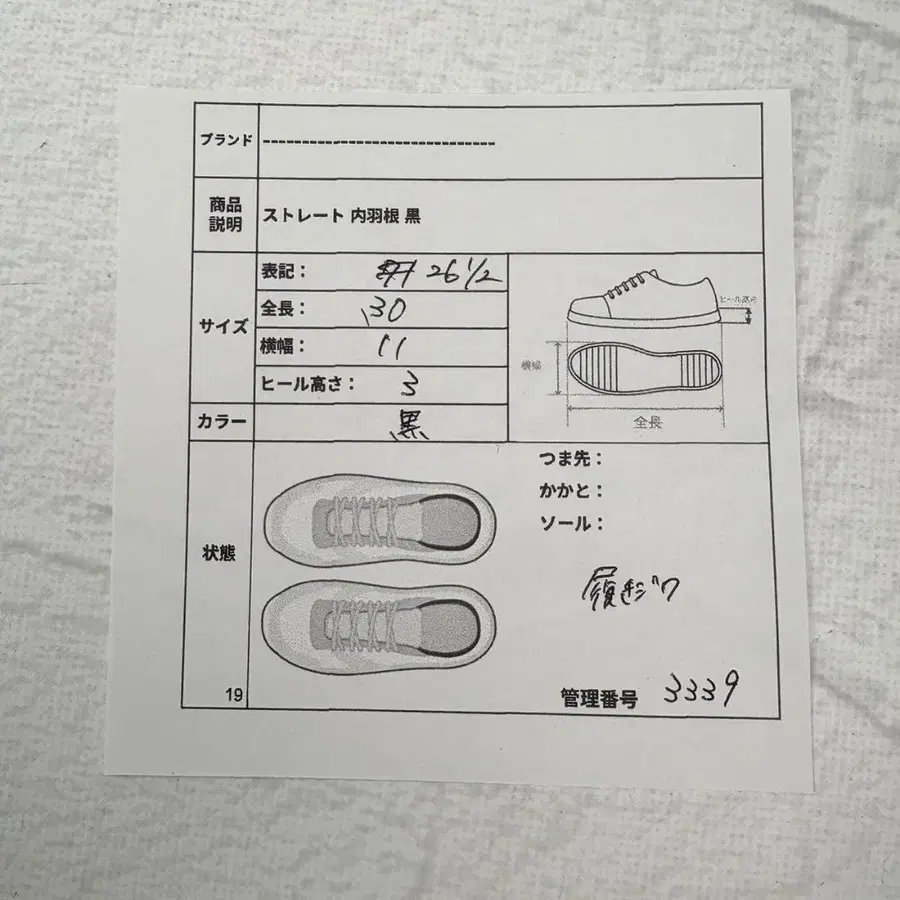 ブランド ------------------------------
商品説明 ストレート 内羽根 黒
サイズ
表記： 26 1/2
全長： 30
横幅： 11
ヒール高さ： 3
ヒール高さ
横幅
全長
カラー 黒
状態
つま先：
かかと：
ソール：
履きジワ
19
管理番号 3339